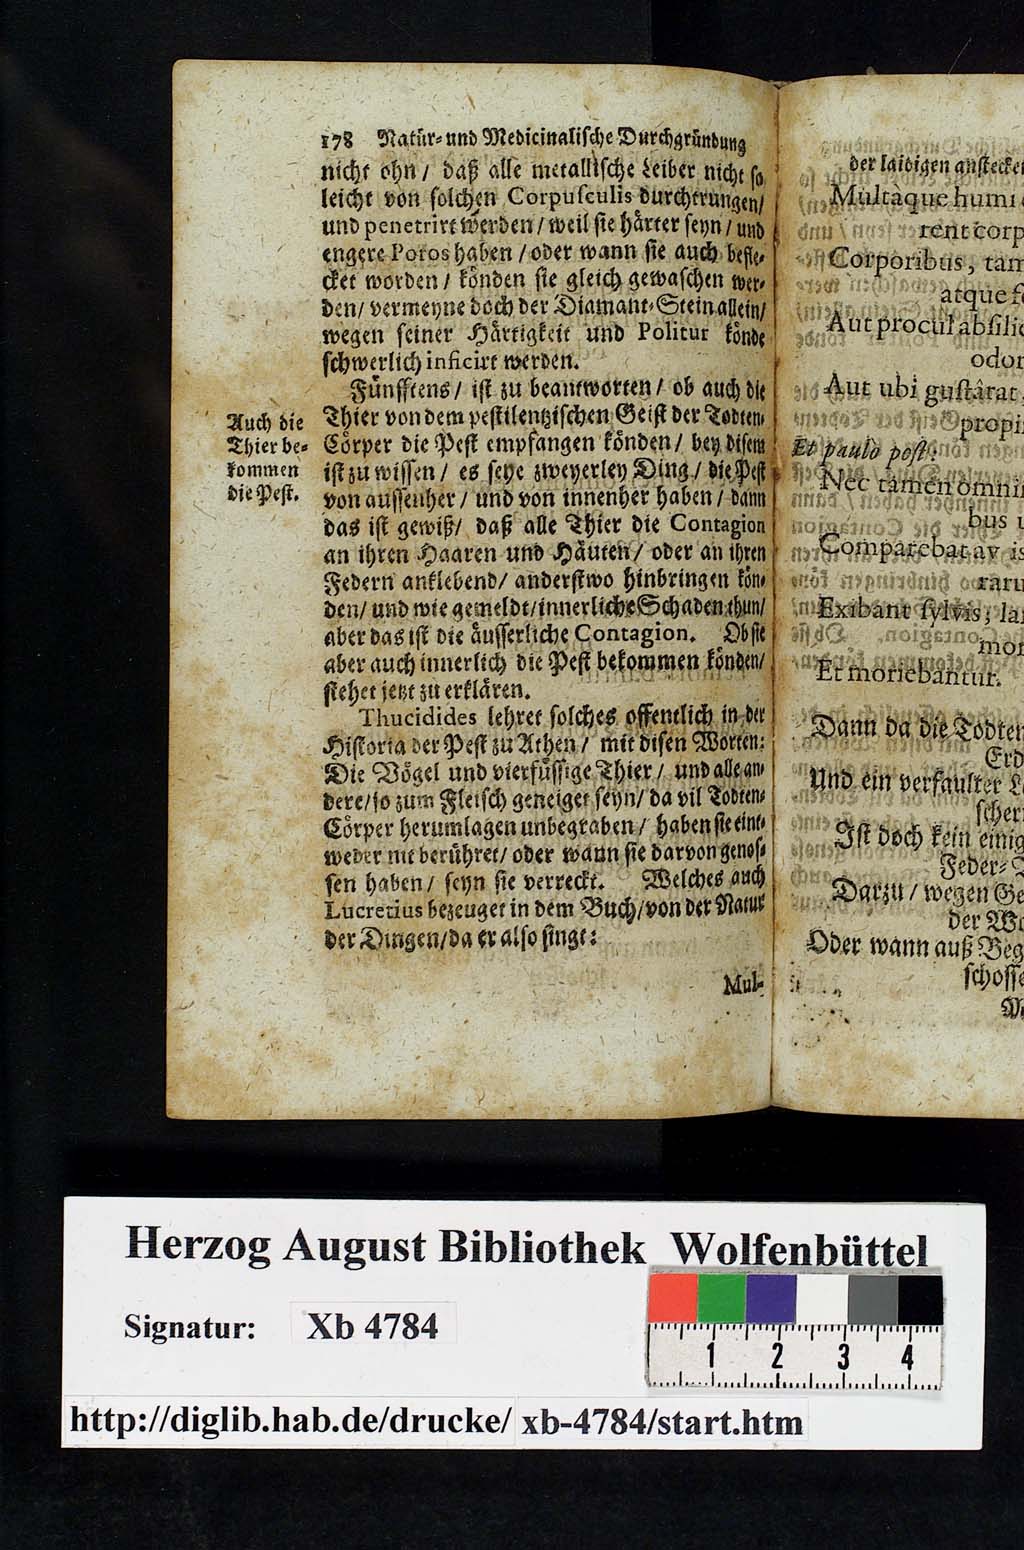 178 Natůr- und Medicinalische Durchgründung
nicht ohn / daß alle metallische Leiber nicht so
leicht von solchen Corpusculis durchtrungen/
und penetrirt werden / weil sie härter seyn / und
engere Poros haben / oder wann sie auch befle-
cket worden / könden sie gleich gewaschen wer-
den / vermeyne doch der Diamant-Stein allein/
wegen seiner Härtigkeit und Politur könde
schwerlich inficirt werden.
Fünfftens / ist zu beantworten / ob auch die
Thier von dem pestilentzischen Geist der Todten-
Cörper die Pest empfangen könden / bey disem
ist zu wissen / es seye zweyerley Ding / die Pest
von aussenher / und von innenher haben / dann
das ist gewiß / daß alle Thier die Contagion
an ihren Haaren und Häuten / oder an ihren
Federn anklebend / anderstwo hinbringen kön-
den / und wie gemeldt / innerliche Schaden thun/
aber das ist die äusserliche Contagion. Ob sie
aber auch innerlich die Pest bekommen könden/
stehet jetzt zu erklären.
Auch die
Thier be-
kommen
die Pest.
Thucidides lehret solches offentlich in der
Historia der Pest zu Athen / mit disen Worten:
Die Vögel und vierfüssige Thier / und alle an-
dere / so zum Fleisch geneiget seyn / da vil Todten-
Cörper herumlagen unbegraben / haben sie eint-
weder nit berühret / oder wann sie darvon genos-
sen haben / seyn sie verreckt. Welches auch
Lucretius bezeuget in dem Buch / von der Natur
der Dingen / da er also singt:
Mul-
der laidigen anstecke
Multàque humi
rent corp
Corporibus, tam
atque f
Aut procul absilie
odor
Aut ubi gustârat
propi
Et paulò post:
Nec tamen omnin
bus
Comparebat av is
raru
Exibant sylvis; la
mor
Et moriebantur.
Dann da die Todten
Erd
Und ein verfaulter L
scher
Ist doch kein einig
Feder-
Darzu / wegen Ge
der Wo
Oder wann auß Beg
schosse
Herzog August Bibliothek Wolfenbüttel
Signatur: Xb 4784
1 2 3 4
http://diglib.hab.de/drucke/ xb-4784/start.htm